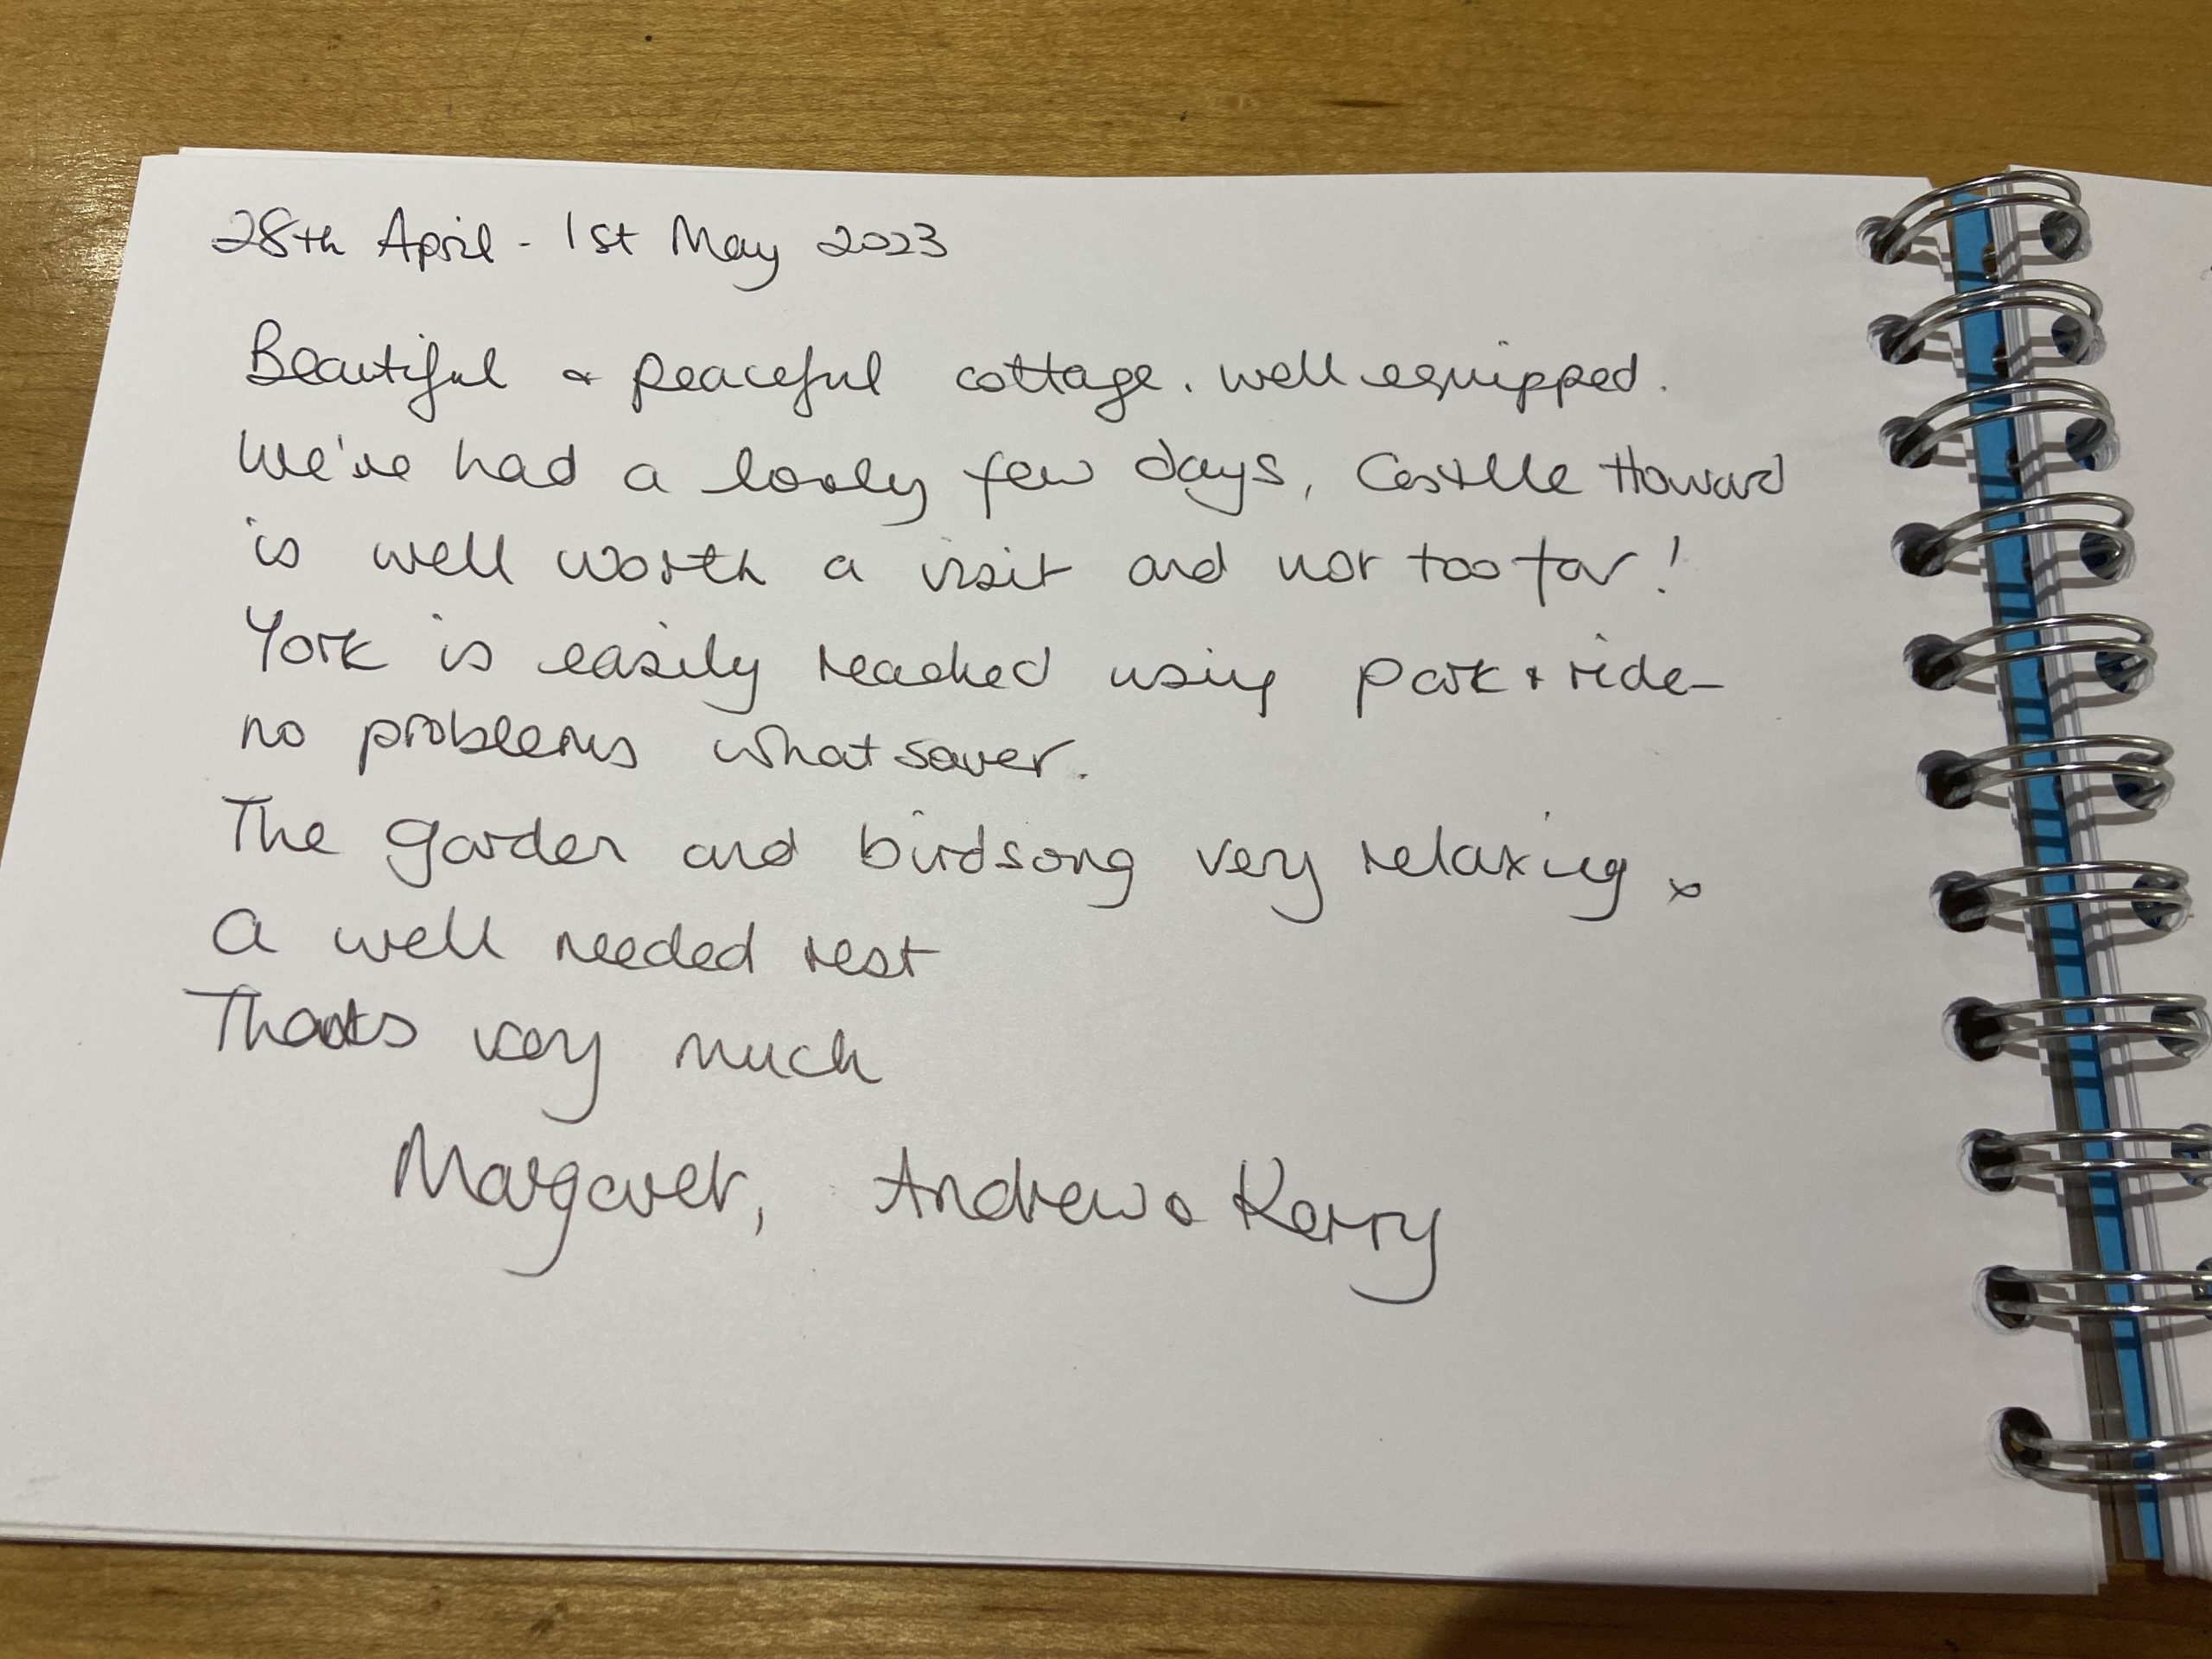 28th April - 1st May 2023
Beautiful & peaceful cottage. well equipped.
We've had a lovely few days, Castle Howard
is well worth a visit and not too far!
York is easily reached using park & ride-
no problems whatsover.
The garden and birdsong very relaxing &
a well needed rest
Thanks very much
Margaret, Andrew & Kerry